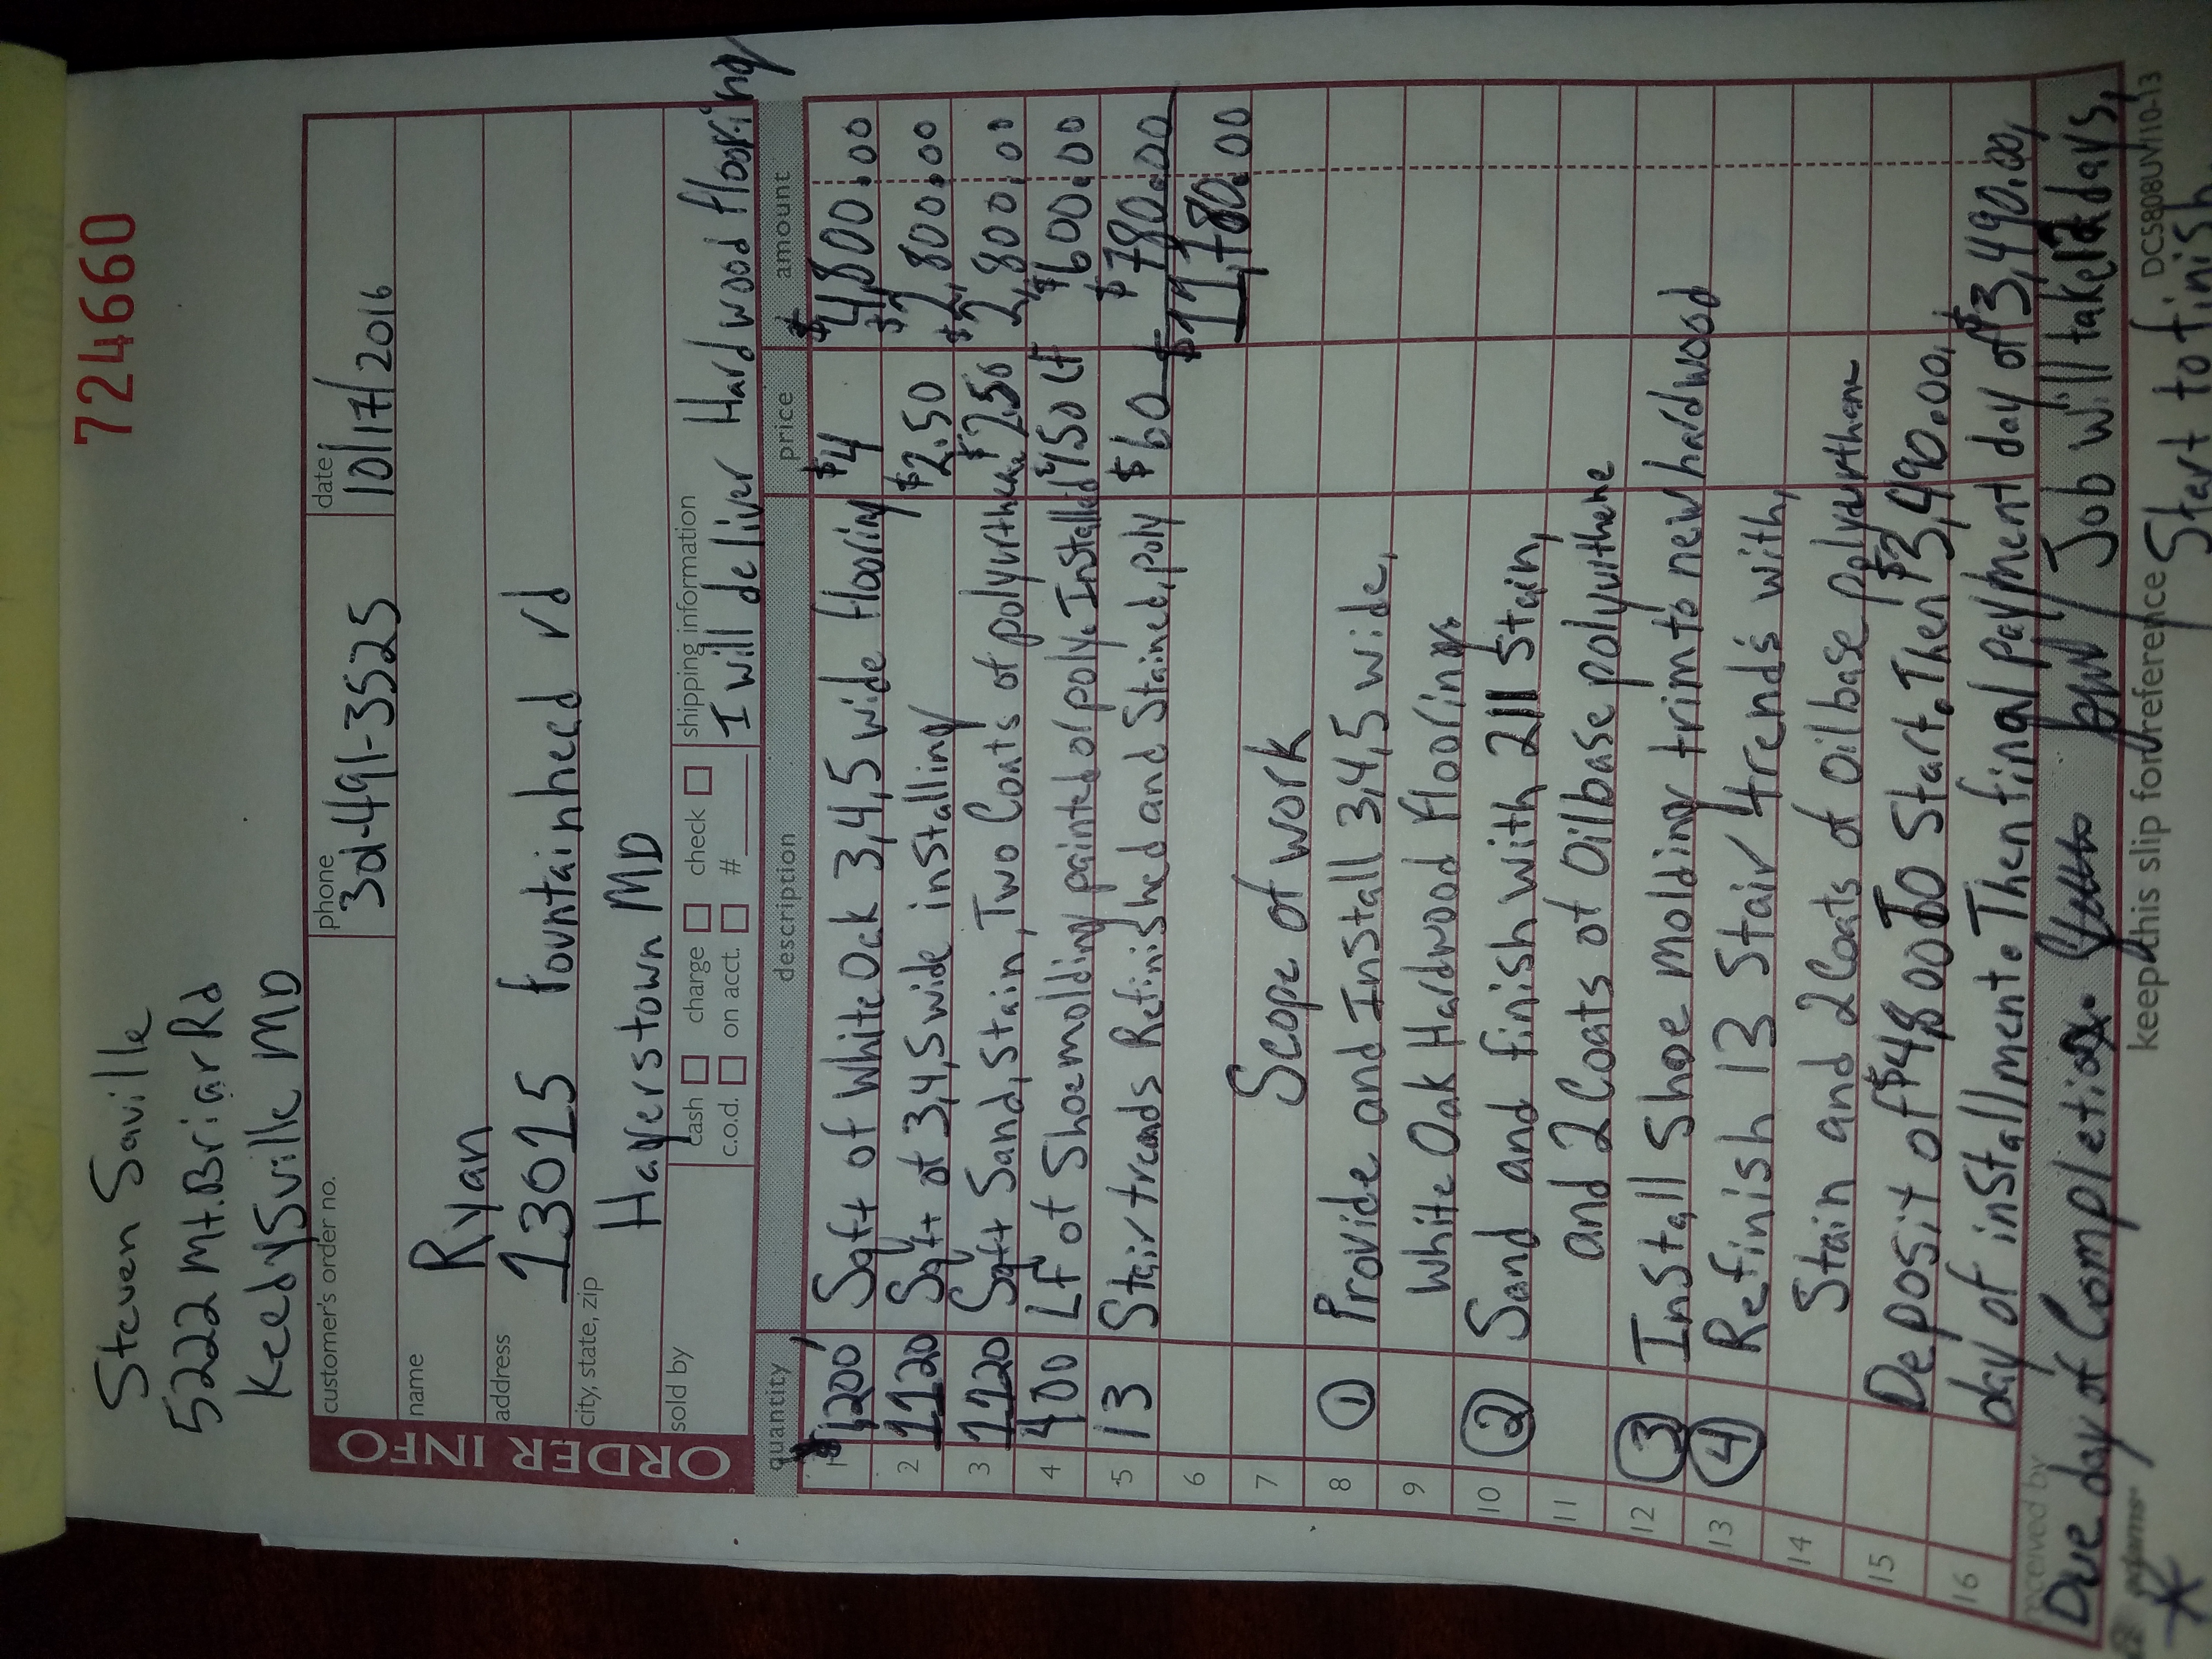 Steven Saville
724660
5222 Mt. Briar Rd
Keedysville MD
ORDER INFO
customer's order no.
phone
301-491-3525
date
10/17/2016
name
Ryan
address
13015 fountainheed rd
city, state, zip
Hagerstown MD
sold by
cash charge check
c.o.d. on acct. #
shipping information
I will deliver Hardwood flooring
quantity description price amount
1 1,200 Sqft of White Oak 3,4,5 wide flooring $4 $4,800.00
2 1120 Sqft of 3,4,5 wide installing $2.50 $2,800.00
3 1120 Sqft Sand, Stain, Two Coats of polyurthene $2.50 $2,800.00
4 400 LF of Shoemolding painted or poly. Installed $1.50 Lf $600.00
5 13 Stair treads Refinished and Stained, poly $60 $780.00
6 $11,780.00
7 Scope of work
8 1 Provide and Install 3,4,5 wide,
9 White Oak Hardwood floorings
10 2 Sand and finish with 211 Stain,
11 and 2 Coats of Oilbase polyurthene
12 3 Install Shoe molding trim to new hardwood
13 4 Refinish 13 Stair trends with,
14 Stain and 2 Coats of Oilbase polyurthene
15 Deposit of $4,800 To Start. Then $3,490.00,
16 day of installment. Then final payment day of $3,490.00,
received by
Due day of Completion. Job will take 12 days,
adams
keep this slip for reference
DC5808UV/10-13
Start to finish